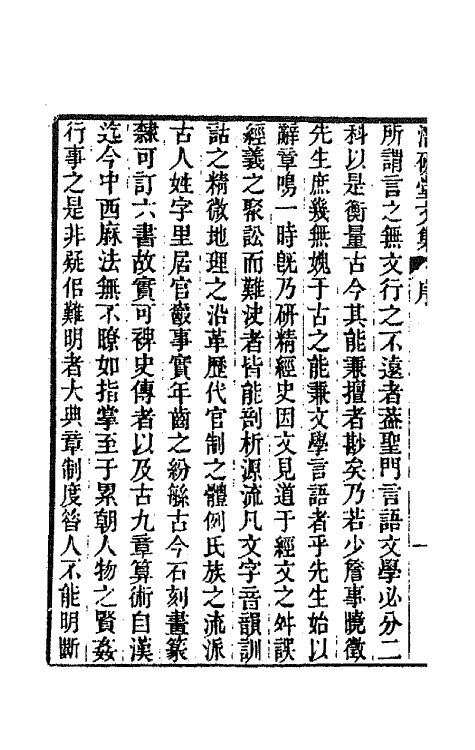 潛研堂文集 序 一
所謂言之無文行之不遠者葢聖門言語文學必分二
科以是衡量古今其能兼擅者尠矣乃若少詹事曉徵
先生庶幾無媿于古之能兼文學言語者乎先生始以
辭章鳴一時旣乃研精經史因文見道于經文之舛誤
經義之聚訟而難決者皆能剖析源流凡文字音韻訓
詁之精微地理之沿革歷代官制之體例氏族之流派
古人姓字里居官爵事實年齒之紛繇古今石刻畫篆
隸可訂六書故實可裨史傳者以及古九章算術自漢
迄今中西麻法無不瞭如指掌至于累朝人物之賢姦
行事之是非疑佀難明者大典章制度昔人不能明斷